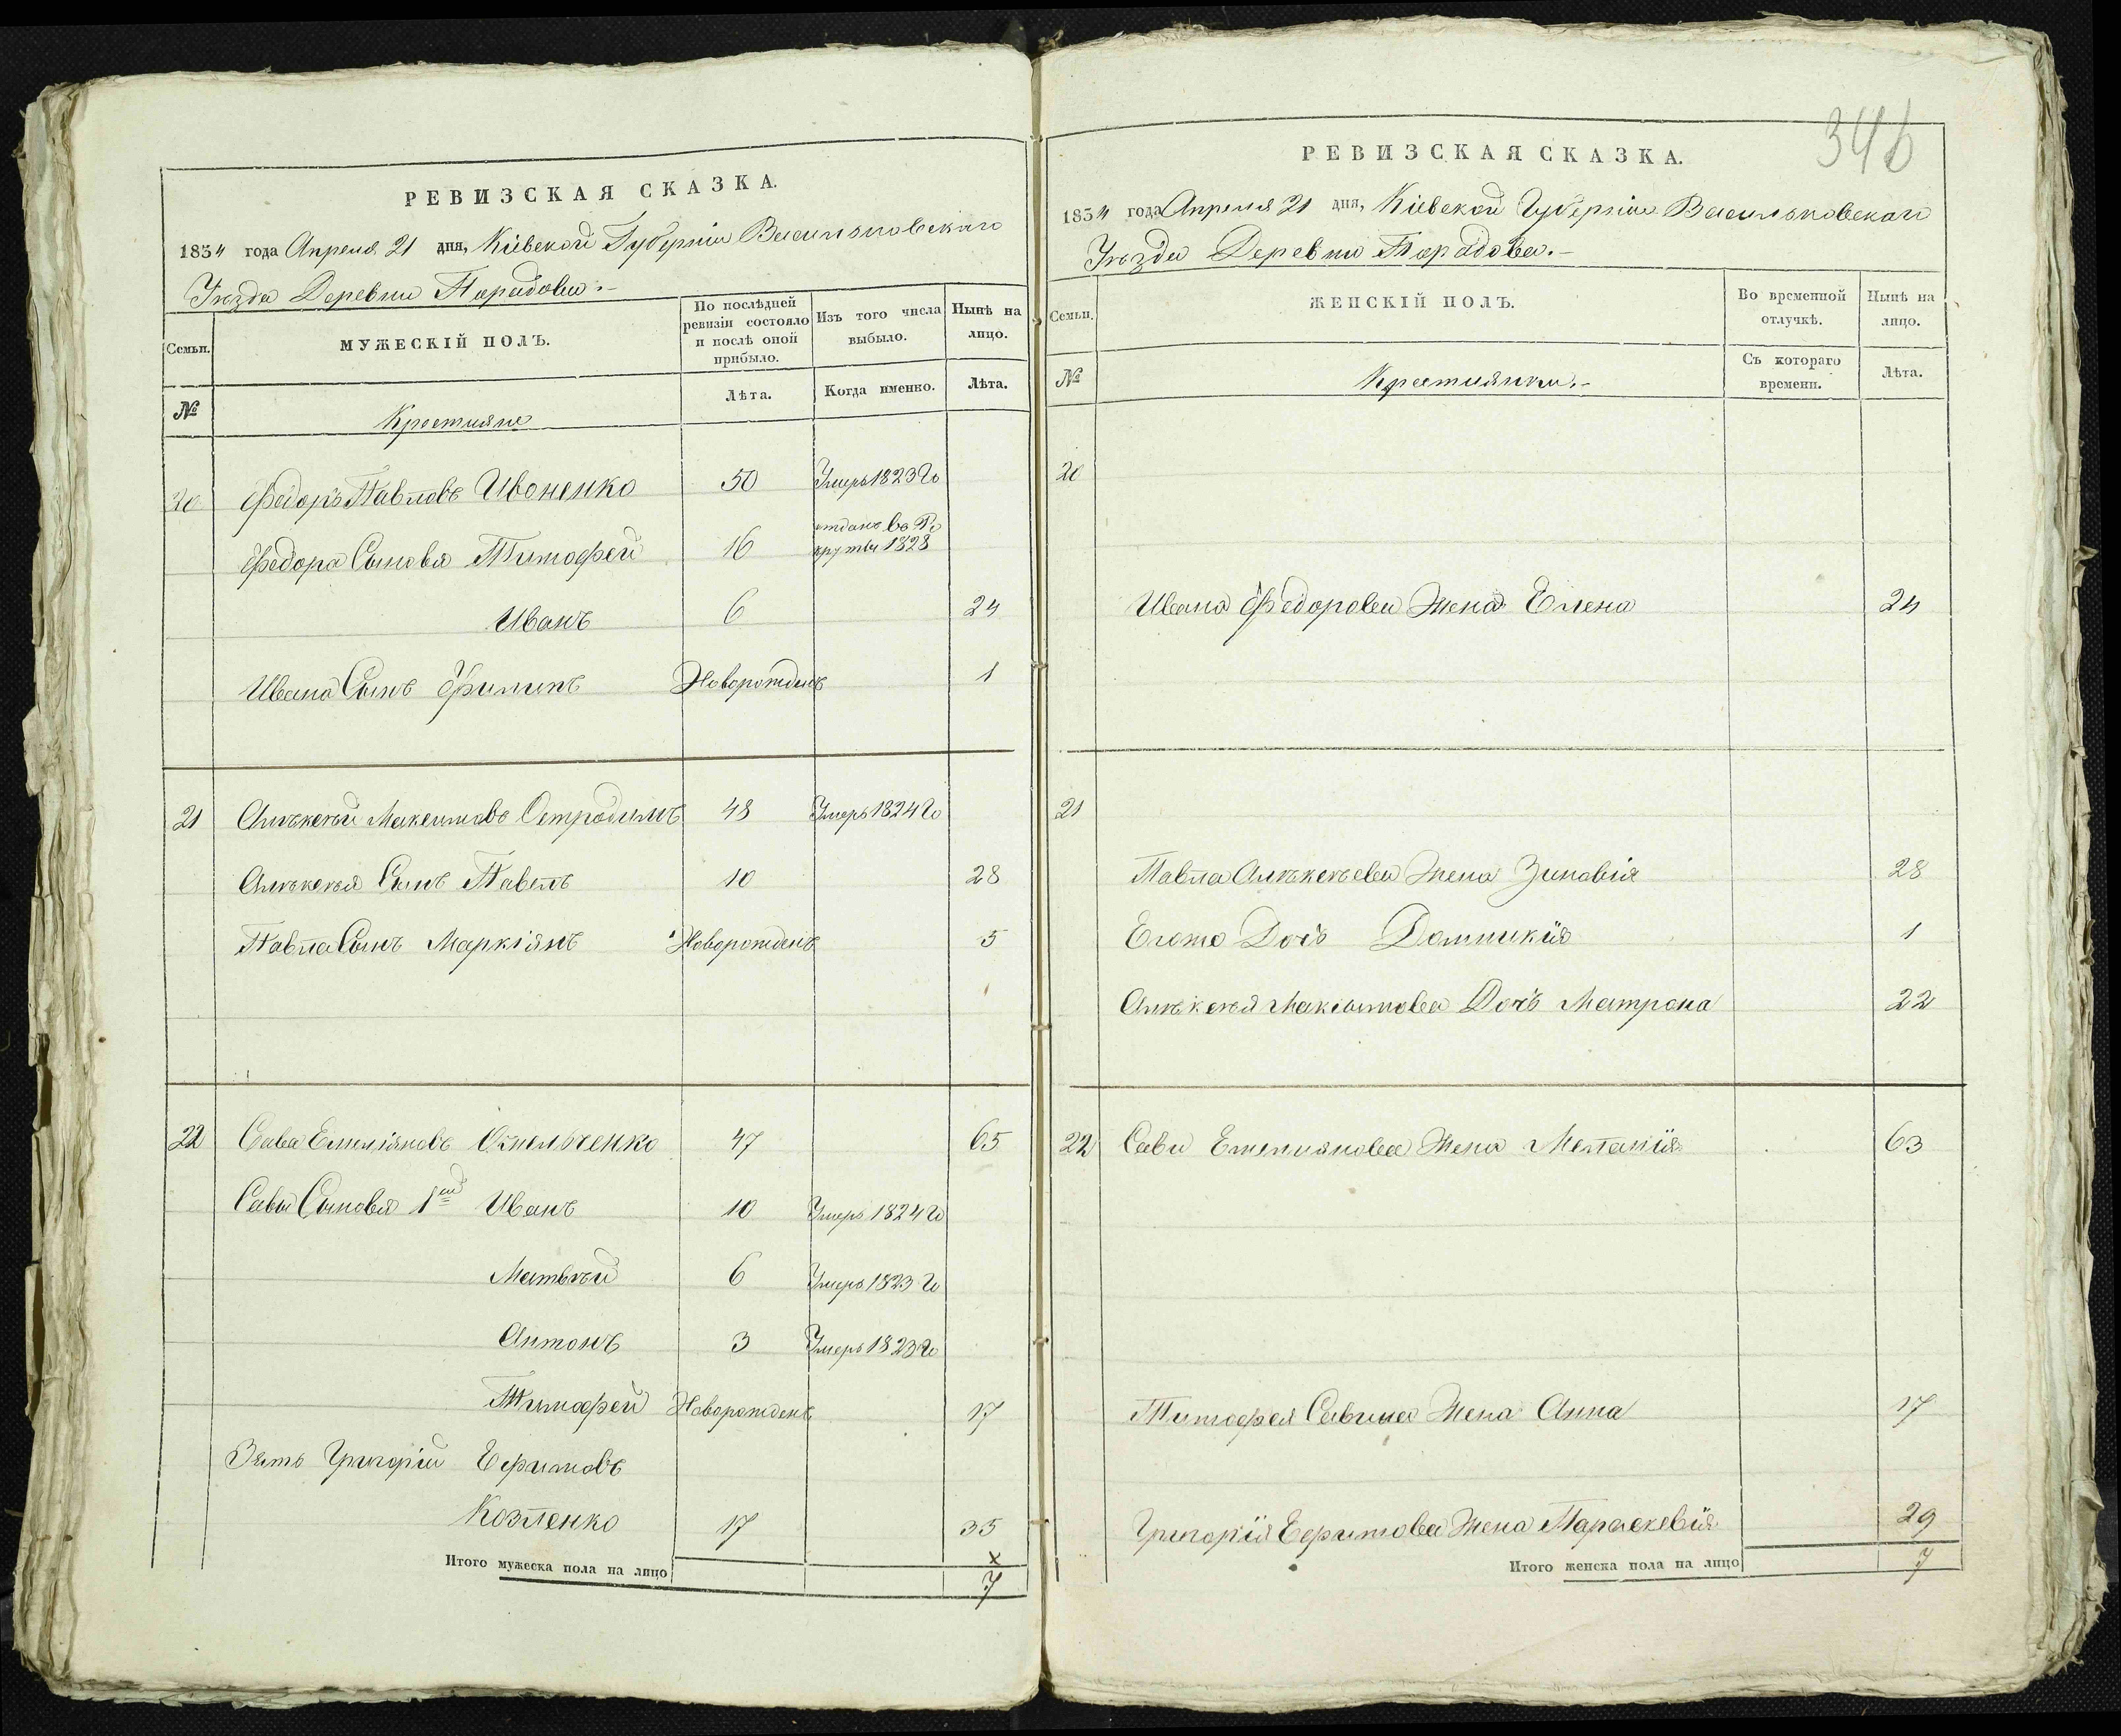 РЕВИЗСКАЯ СКАЗКА.
1834 года Апреля 21 дня, Кіевской Губерніи Васильковскаго
Уѣзда Деревни Парадова.-
Семьи.
МУЖЕСКІЙ ПОЛЪ.
По послѣдней ревизіи состояло и послѣ оной прибыло.
Изъ того числа выбыло.
Нынѣ на лицо.
№
Крестияне
Лѣта.
Когда именно.
Лѣта.
20 Федоръ Павловъ Ивоненко 50 Умеръ 1823 Го
Федора Сыновья Тимофей 16 отданъ въ Рекруты 1828
Иванъ 6 24
Ивана Сынъ Филипъ Новорожденъ 1
21 Алѣксѣй Максимовъ 48 Умеръ 1824 Го
Алѣксѣя Сынъ Павелъ 10 28
Павла Сынъ Маркіянъ Новорожденъ 5
22 Сава Емеліяновъ Омельченко 47 65
Савы Сыновья 1й Иванъ 10 Умеръ 1824 Го
Матвѣй 6 Умеръ 1823 Го
Антонъ 3 Умеръ 1823 Го
Тимофей Новорожденъ 17
Зять Григорій Ефимовъ
Козленко 17 35
Итого мужеска пола на лицо
x
7
346
РЕВИЗСКАЯ СКАЗКА.
1834 года Апреля 21 дня, Кіевской Губерніи Васильковскаго
Уѣзда Деревни Парадова.-
Семьи.
ЖЕНСКІЙ ПОЛЪ.
Во временной отлучкѣ.
Нынѣ на лицо.
№
Крестиянки.-
Съ котораго времени.
Лѣта.
20
Ивана Федорова Жена Елена 24
21
Павла Алѣксѣева Жена Зиновія 28
Егоже Дочь Домникія 1
Алѣксѣя Максимова Дочь Матрона 22
22 Савы Емелиянова Жена Меланія 63
Тимофея Савина Жена Анна 17
Григорія Ефимова Жена Параскевія 29
Итого женска пола на лицо 7